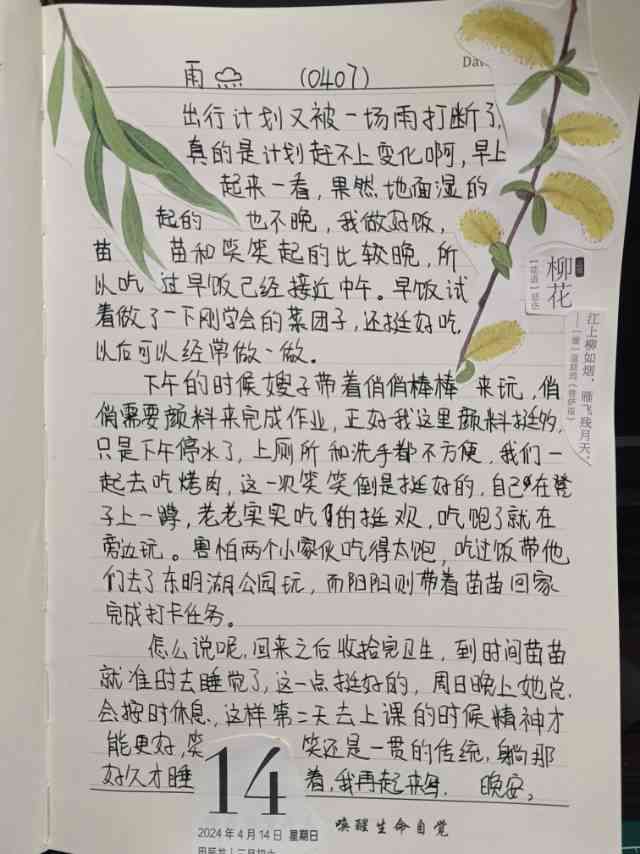 雨 (0407)
Da
出行计划又被一场雨打断了,
真的是计划赶不上变化啊,早上
起来一看,果然地面湿的
起的 也不晚,我做好饭,
苗 苗和笑笑起的比较晚,所
以吃 过早饭已经接近中午。早饭试
着做了一下刚学会的菜团子,还挺好吃,
以后可以经常做一做。
下午的时候嫂子带着俏俏棒棒 来玩,俏
俏需要颜料来完成作业,正好我这里颜料挺多,
只是下午停水了,上厕所和洗手都不方便,我们一
起去吃烤肉,这一次笑笑倒是挺好的,自己在凳
子上一蹲,老老实实吃的挺欢,吃饱了就在
旁边玩。害怕两个小家伙吃得太饱,吃过饭带他
们去了东明湖公园玩,而阳阳则带着苗苗回家
完成打卡任务。
怎么说呢,回来之后收拾完卫生,到时间苗苗
就准时去睡觉了,这一点挺好的,周日晚上她总
会按时休息,这样第二天去上课的时候精神才
能更好,笑 笑还是一贯的传统,躺那
好久才睡 着,我再起来 晚安。
柳花
江上柳如烟,雁飞残月天。
14
2024年4月14日 星期日
唤醒生命自觉